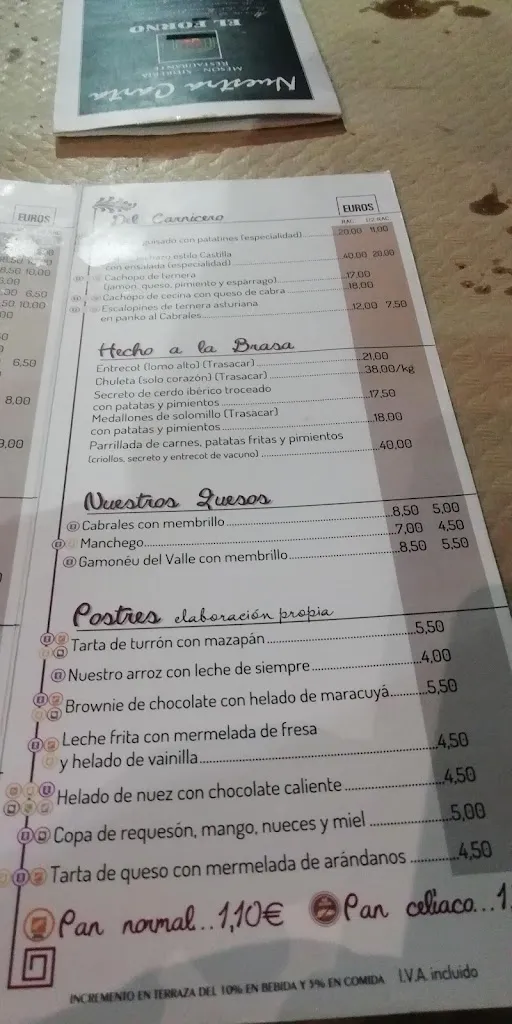 Nuestra Carta
MESÓN SIDRERÍA
RESTAURANTE
EL FORNO
EUROS
Del Carnicero
EUROS
RAC. 1/2 RAC.
con patatines (especialidad) 20,00 11,00
estilo Castilla
con ensalada (especialidad) 40,00 20,00
Cachopo de ternera
(jamón, queso, pimiento y espárrago) 17,00
Cachopo de cecina con queso de cabra 18,00
Escalopines de ternera asturiana
en panko al Cabrales 12,00 7,50
Hecho a la Brasa
Entrecot (lomo alto) (Trasacar) 21,00
Chuleta (solo corazón) (Trasacar) 38,00/kg
Secreto de cerdo ibérico troceado
con patatas y pimientos 17,50
Medallones de solomillo (Trasacar)
con patatas y pimientos 18,00
Parrillada de carnes, patatas fritas y pimientos
(criollos, secreto y entrecot de vacuno) 40,00
Nuestros Quesos
Cabrales con membrillo 8,50 5,00
Manchego 7,00 4,50
Gamonéu del Valle con membrillo 8,50 5,50
Postres elaboración propia
Tarta de turrón con mazapán 5,50
Nuestro arroz con leche de siempre 4,00
Brownie de chocolate con helado de maracuyá 5,50
Leche frita con mermelada de fresa
y helado de vainilla 4,50
Helado de nuez con chocolate caliente 4,50
Copa de requesón, mango, nueces y miel 5,00
Tarta de queso con mermelada de arándanos 4,50
Pan normal...1,10€ Pan celiaco...1,
INCREMENTO EN TERRAZA DEL 10% EN BEBIDA Y 5% EN COMIDA I.V.A. incluido
6,50
10,00
6,50
10,00
6,50
8,00
9,00